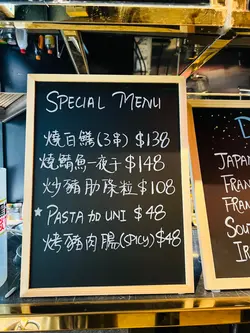 SPECIAL MENU
燒白鱔(3串) $138
燒鯖魚一夜干 $148
炒豬肋條粒 $108
★ PASTA 加 UNI $48
烤豬肉腸(SPICY) $48
JAPAN
FRAN
FRAN
IR